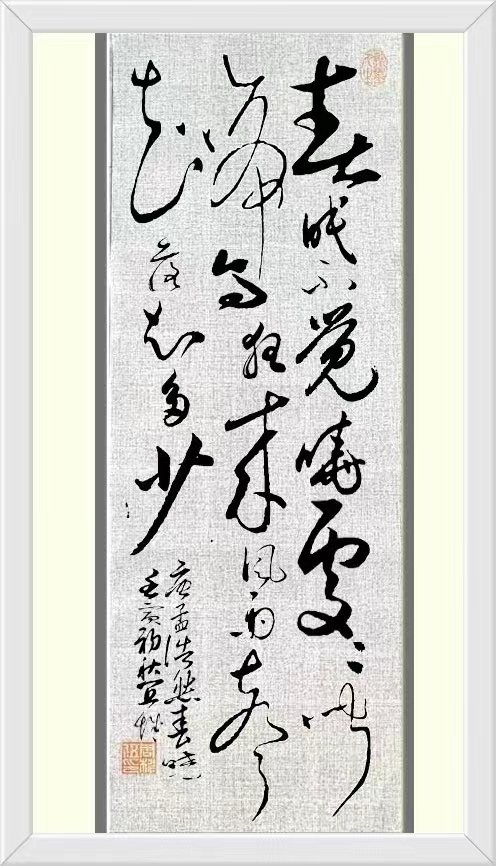 春眠不觉曉處々闻
啼鸟夜来风雨声
花落知多少
唐孟浩然春晓
壬寅初秋